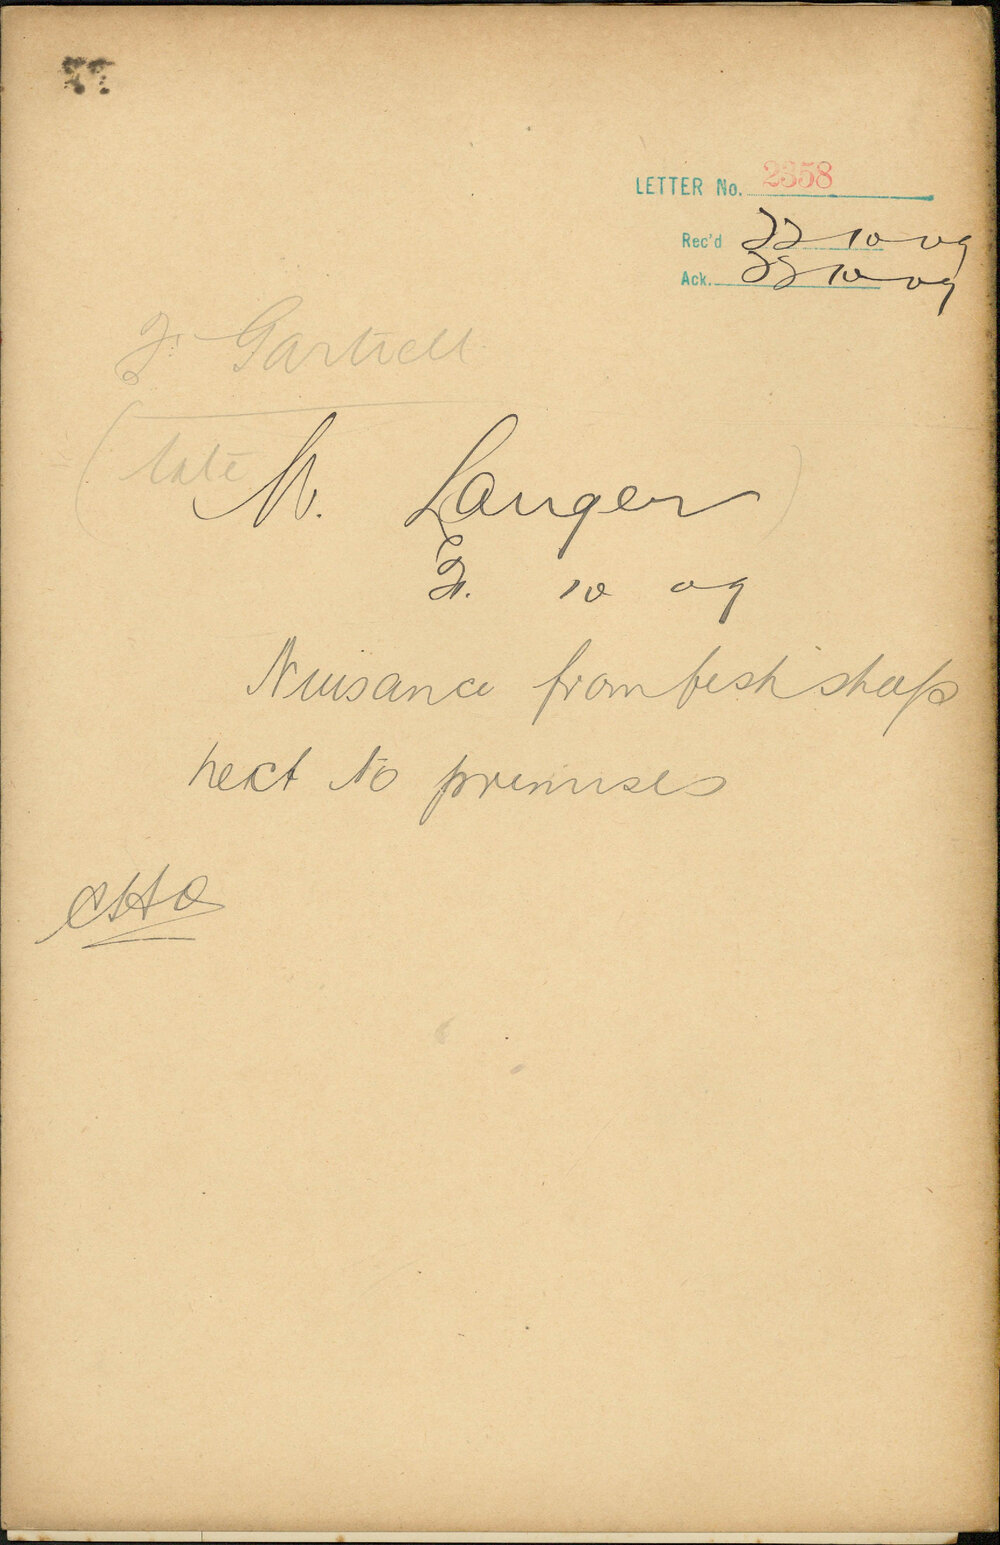 LETTER No. 2358
Rec'd 22 10 09
Ack. 22 10 09
F. Gartrell
(late M. Langer)
10 09
Nuisance from fish shops
next to premises